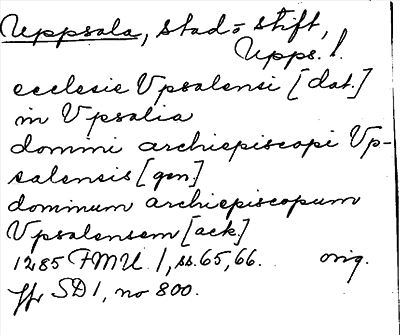 Uppsala, stad o stift,
Upps. l.
ecclesie Vpsalensi [dat.]
in Vpsalia
domini archiepiscopi Vp-
salensis [gen]
dominum archiepiscopum
Vpsalensem [ack]
1285 FMU 1, ss. 65, 66. orig.
Jfr SD 1, no 800.